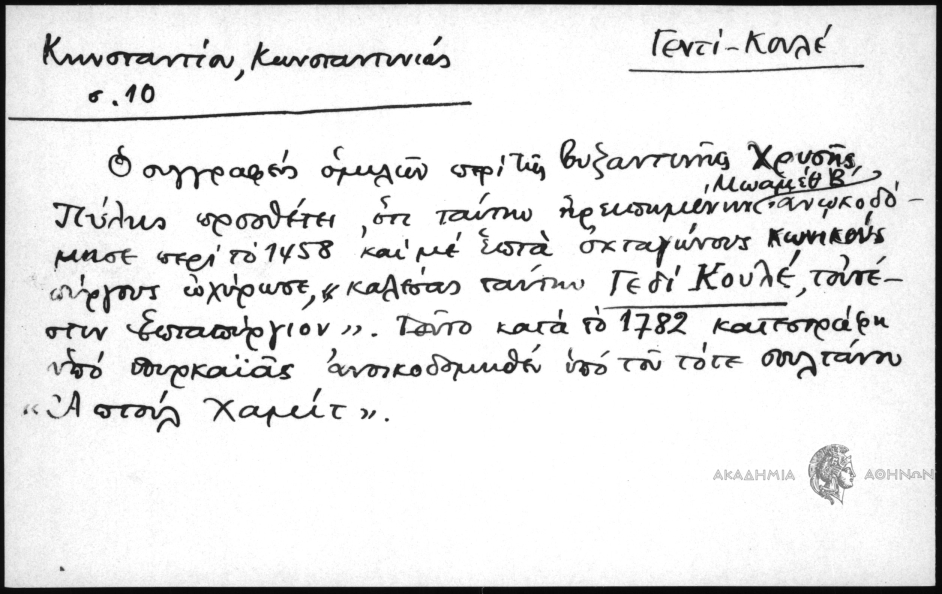 Κωνσταντίου, Κωνσταντινιάς
Γεντί-Κουλέ
σ. 10
Ὁ συγγραφεύς ὁμιλῶν περί τῆς Βυζαντινῆς Χρυσῆς
Μωαμέθ Β΄
Πύλης προσθέτει, ὅτι ταύτην ἠρειπωμένην ἀνῳκοδό-
μησε περί τό 1458 καί μέ ἑπτά ὀκταγώνους κωνικούς
πύργους ὠχύρωσε, «καλέσας ταύτην Γεδί Κουλέ, τοὐτέ-
στιν ἑπταπύργιον». Τοῦτο κατά τό 1782 κατεστράφη
ὑπό πυρκαϊᾶς ἀνοικοδομηθέν ὑπό τοῦ τότε σουλτάνου
«Ἀπτούλ Χαμείτ».
ΑΚΑΔΗΜΙΑ ΑΘΗΝΩΝ